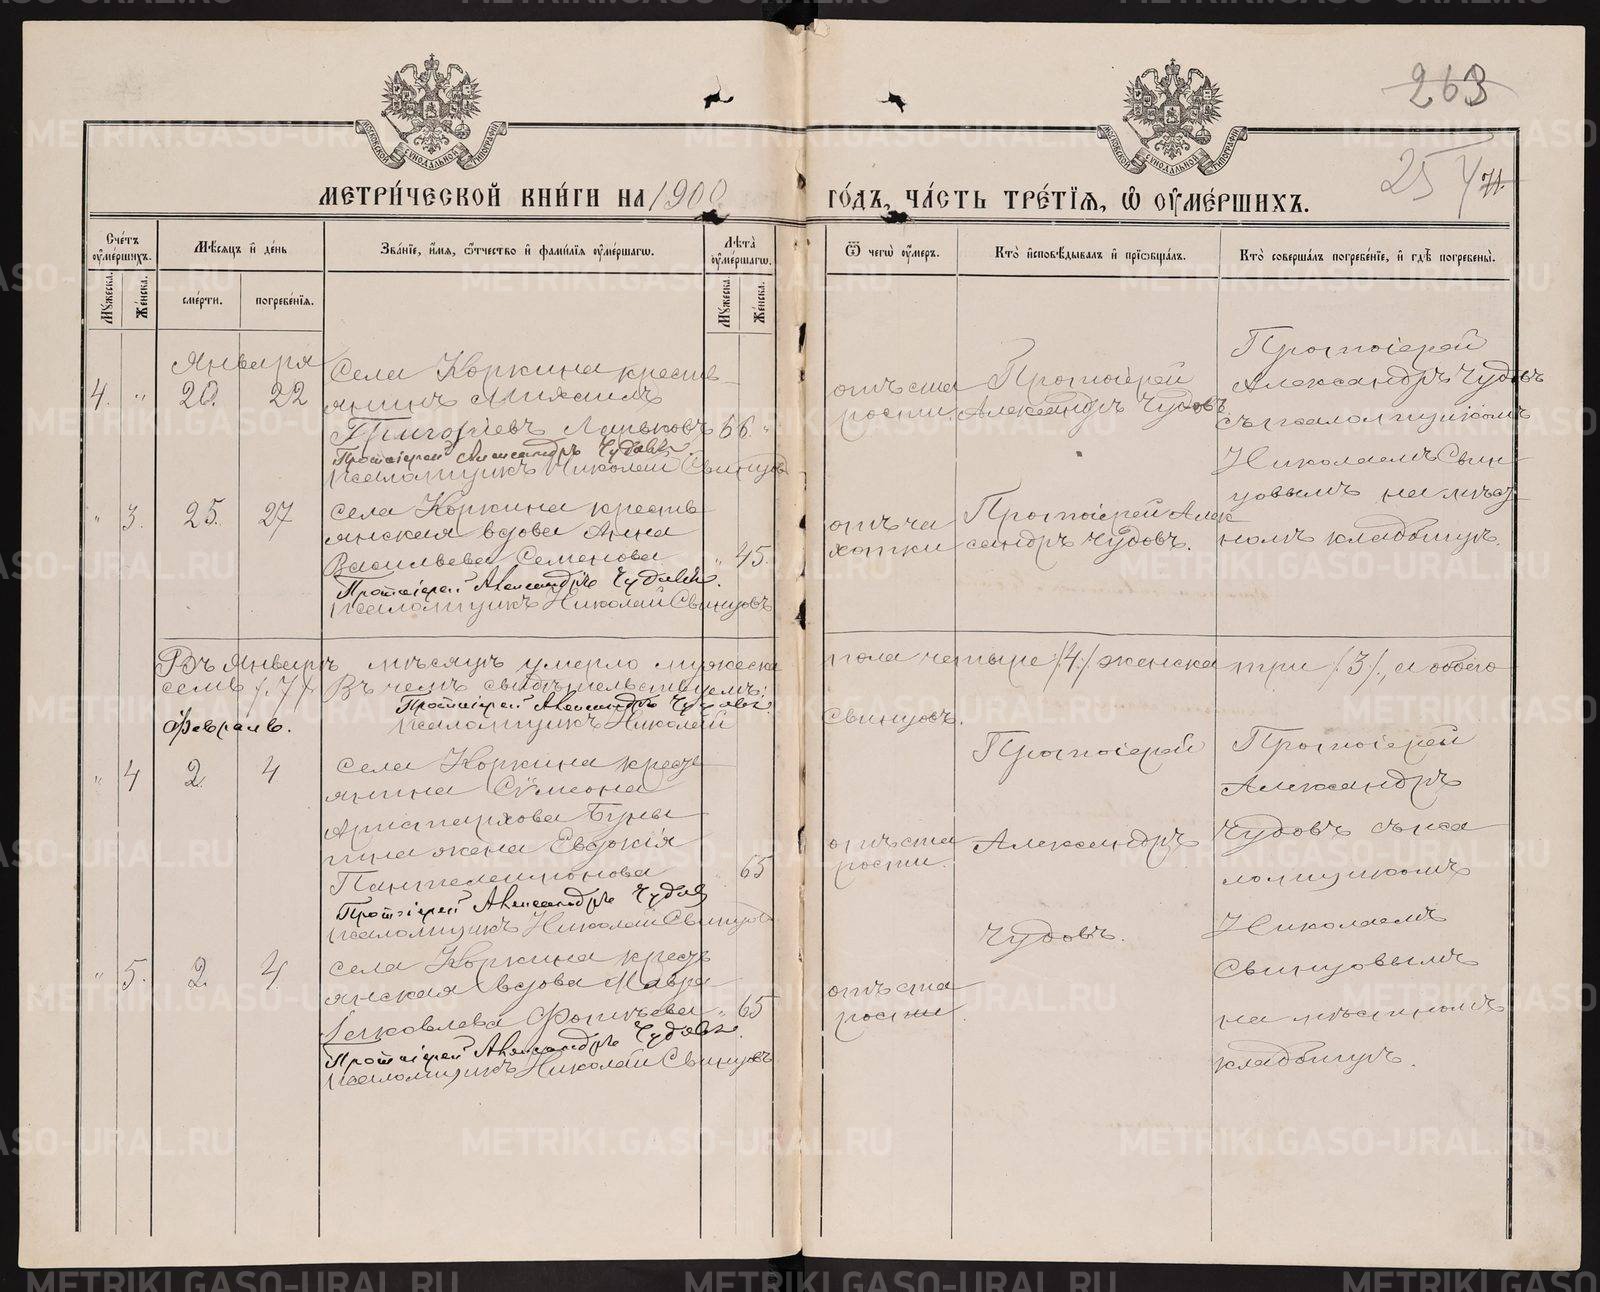 263
254
71.
МОСКОВСКОЙ СУНОДАЛЬНОЙ ТИПОГРАФІИ
МОСКОВСКОЙ СУНОДАЛЬНОЙ ТИПОГРАФІИ
МЕТРИ́ЧЕСКОЙ КНИ́ГИ НА 1900
ГО́ДЪ, ЧА́СТЬ ТРЕ́ТЇѦ, Ѡ҆ ОУ҆МЕ́РШИХЪ.
Сче́тъ оу҆ме́ршихъ.
Мꙋжеска.
Же́нска.
Мѣ́сѧцъ и҆ де́нь
сме́рти.
погребе́нїѧ.
Зва́нїе, и҆́мѧ, ѻ҆́тчество и҆ фами́лїѧ оу҆ме́ршагѡ.
Лѣта̀ оу҆ме́ршагѡ.
Мꙋжеска.
Же́нска.
Ѿ чегѡ̀ оу҆́меръ.
Кто̀ и҆сповѣ́дывалъ и҆ прїѡбща́лъ.
Кто̀ соверша́лъ погребе́нїе, и҆ гдѣ̀ погребены̀.
Января
4. " 20. 22
Села Коркина кресть-
янинъ Максимъ
Григорьевъ Ланьковъ 66. "
Протоіерей Александръ Чудовъ.
Псаломщикъ Николай Свинцовъ
отъ ста
рости
Протоіерей
Александръ Чудовъ
Протоіерей
Александръ Чудовъ
съ псаломщикомъ
Николаемъ Свин-
цовымъ на мѣст-
номъ кладбищѣ.
" 3. 25. 27
села Коркина кресть-
янская вдова Анна
Васильева Семенова " 45.
Протоіерей Александръ Чудовъ.
Псаломщикъ Николай Свинцовъ
отъ ча
хотки
Протоіерей Алек
сандръ Чудовъ.
Въ Январѣ мѣсяцѣ умерло мужеска пола четыре /4/ женска три /3/, а обоего
семь /7/ Въ чемъ свидѣтельствуемъ:
Протоіерей Александръ Чудовъ.
Псаломщикъ Николай Свинцовъ.
Февраль.
" 4 2. 4
села Коркина кресть-
янина Сѵмеона
Аристархова Буны
гина жена Евдокія
Пантелеимонова 65
Протоіерей Александръ Чудовъ
Псаломщикъ Николай Свинцовъ
отъ ста
рости.
Протоіерей
Александръ
Чудовъ.
Протоіерей
Александръ
Чудовъ съ пса
ломщикомъ
Николаемъ
Свинцовымъ
на мѣстномъ
кладбищѣ.
" 5. 2. 4.
села Коркина кресть
янская вдова Мавра
Іаковлева Фотѣева " 65
Протоіерей Александръ Чудовъ.
Псаломщикъ Николай Свинцовъ
отъ ста
рости.
METRIKI.GASO-URAL.RU